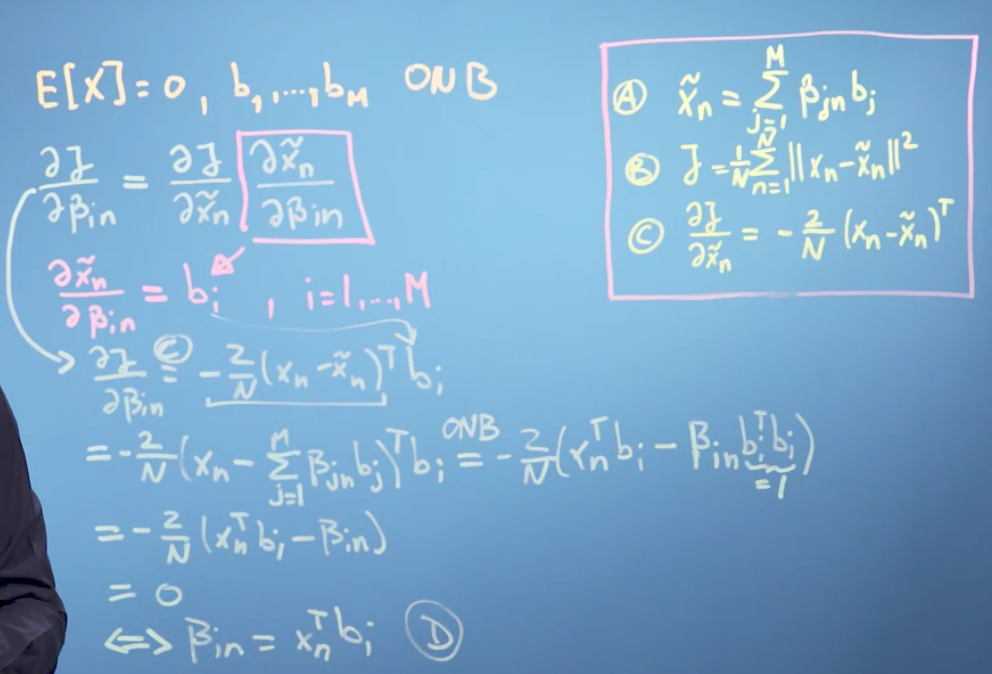 E[X] = 0, b₁,...,b_M ONB
∂J/∂β_in = ∂J/∂x̃_n ∂x̃_n/∂β_in
∂x̃_n/∂β_in = b_i , i=1,...,M
∂J/∂β_in =^Ⓒ -2/N (x_n - x̃_n)^T b_i
= -2/N (x_n - Σ_{j=1}^M β_jn b_j)^T b_i =^ONB -2/N (x_n^T b_i - β_in b_i^T b_i)
=1
= -2/N (x_n^T b_i - β_in)
= 0
⟺ β_in = x_n^T b_i Ⓓ
Ⓐ x̃_n = Σ_{j=1}^M β_jn b_j
Ⓑ J = 1/N Σ_{n=1}^N ||x_n - x̃_n||²
Ⓒ ∂J/∂x̃_n = -2/N (x_n - x̃_n)^T